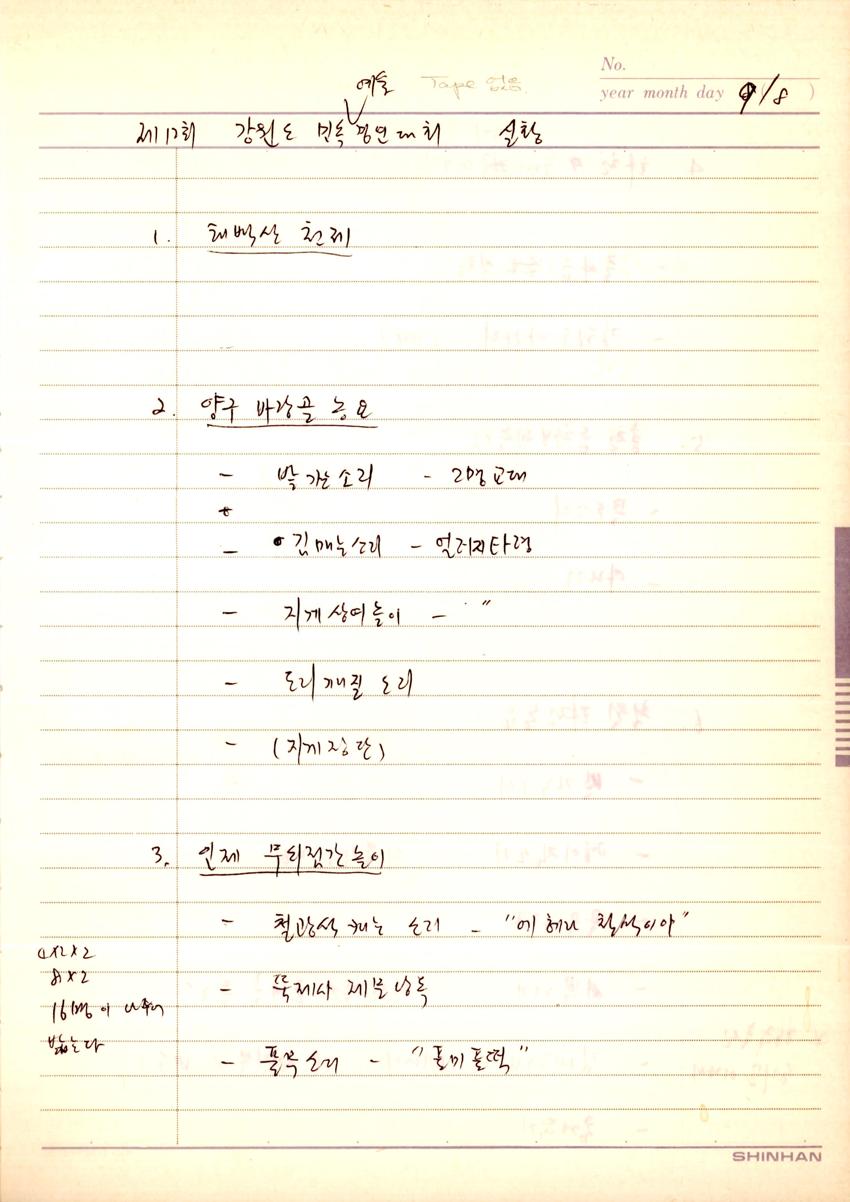 No.
year month day 9/8 )
예술 Tape 있음.
제17회 강원도 민속경연대회 실황
1. 태백산 천제
2. 양구 바랑골 농요
- 밭 가는 소리 - 2명 교대
- 김매는 소리 - 얼러지타령
- 지게상여놀이 - "
- 도리깨질 소리
- (지게장단)
3. 인제 무쇠점간놀이
- 철광석 캐는 소리 - "에 헤이 철석이야"
4x2x2
8x2
- 뚝제사 제문낭독
16명이 나누어
밟는다
- 풀무 소리 - "풀미풀떡"
SHINHAN